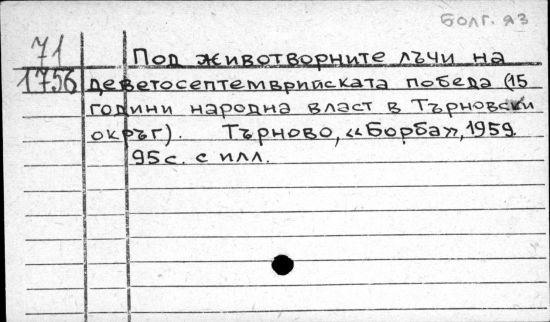 болг. яз
71
1756
Под животворните лъчи на
деветосептемврийската победа (15
години народна власт в Търновски
окръг). Търново, «Борба», 1959.
95 с. с илл.